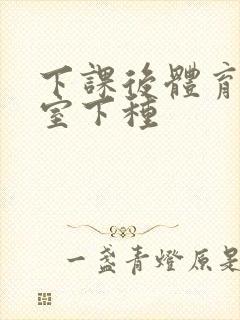 下課後體育
室下種
一盞青燈原是